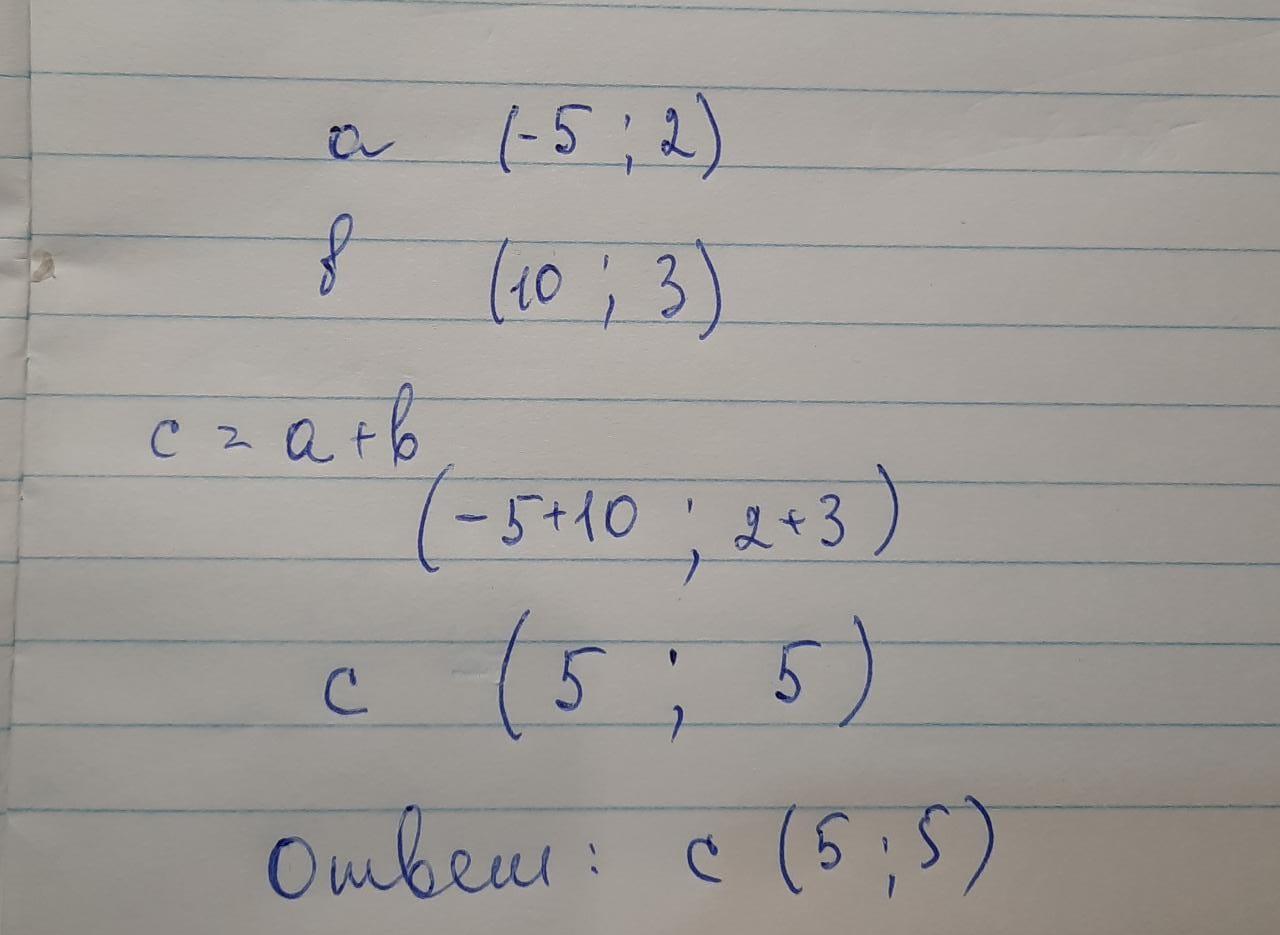 a (-5 ; 2)
b (10 ; 3)
c = a + b
(-5+10 ; 2+3)
c (5 ; 5)
Ответ: c (5 ; 5)